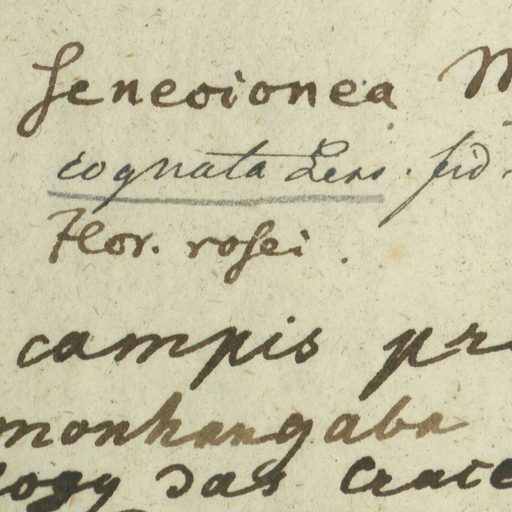 Senecionea M
cognata Less. fid.
Flor. rosei.
campis pr
monhangaba
das Crate